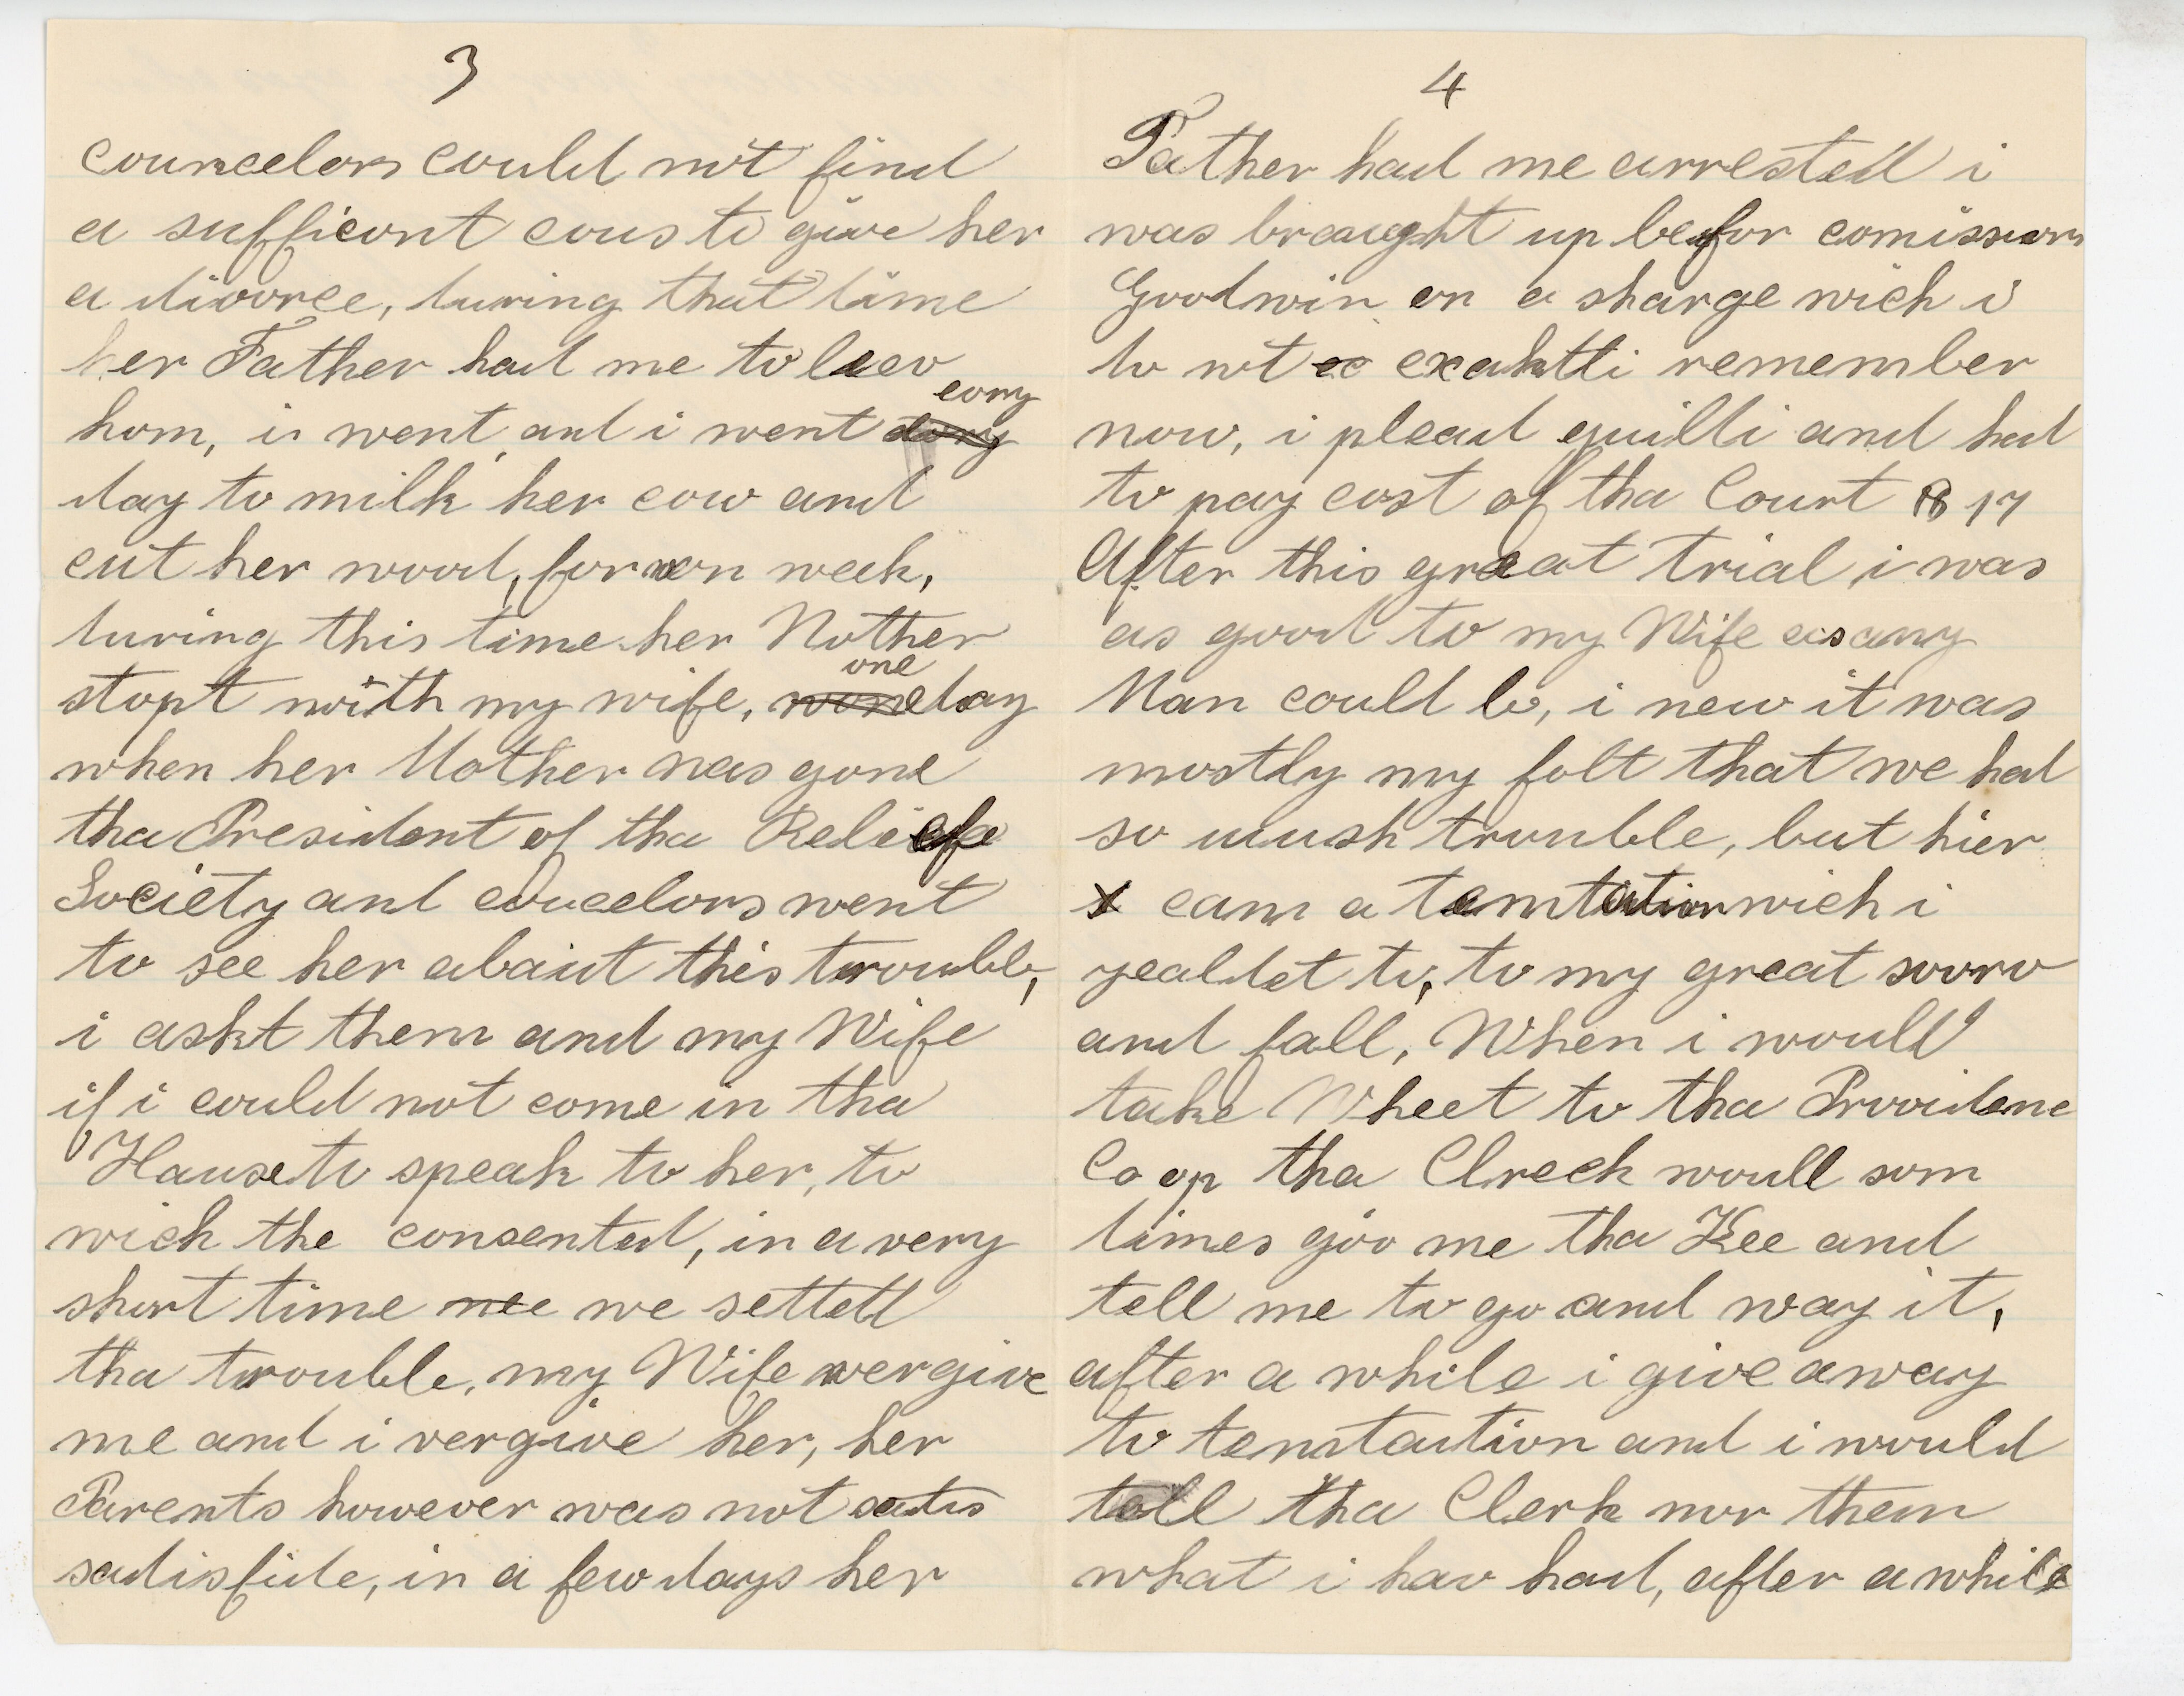 3
councelors could not find
a sufficient cous to give her
a divorce, during that time
her Father had me to leev
hom, i went and i went evry
day to milk her cow and
cut her wood, for on week,
during this time her Mother
stopt with my wife, one day
when her Mother was gone
tha President of tha Reliefe
Society and coucelors went
to see her abaut this trouble,
i askt them and my Wife
if i could not come in tha
Hause to speak to her, to
wich the consented, in a very
short time we settetd
tha trouble, my Wife vergive
me and i vergive her, her
Parents however was not satis
sadisfide, in a few days her
4
Father had me arrested i
was braught up befor comission
Goodwin on a sharge wich i
do not exakttli remember
now, i plead guilti and had
to pay cost of tha Court $ 17
After this great trial i was
as good to my Wife as any
Man could be, i new it was
mostly my folt that we had
so mush trouble, but hier
cam a temtation wich i
yealdet to, to my great sorro
and fall, When i would
take Wheet to tha Providenc
Co op tha Clreck would som
times giv me tha Kee and
tell me to go and way it,
after a while i give away
to temtaution and i would
tell tha Clerk mor them
what i hav had, after a while